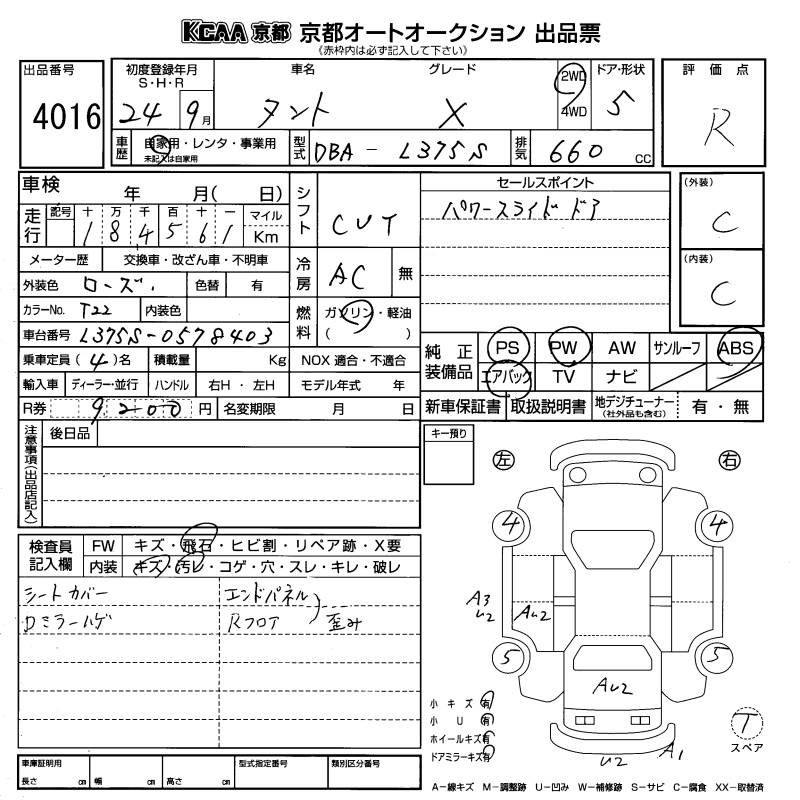 KCAA 京都 京都オートオークション 出品票
《赤枠内は必ず記入して下さい》
出品番号
4016
初度登録年月
S・H・R
24 9月
車名
タント
グレード
X
2WD
4WD
ドア・形状
5
評価点
R
車歴
自家用・レンタ・事業用
未記入は自家用
型式
DBA - L375S
排気
660 CC
車検 年 月( 日)
走行
記号 十 万 千 百 十 一
184561
マイル
Km
シフト
CVT
メーター歴 交換車・改ざん車・不明車
冷房
AC 無
外装色 ローズ 色替 有
カラーNo. T22 内装色
燃料
ガソリン・軽油
( )
車台番号 L375S-0578403
乗車定員(4)名 積載量 Kg NOX 適合・不適合
輸入車 ディーラー・並行 ハンドル 右H・左H モデル年式 年
R券 9200円 名変期限 月 日
セールスポイント
パワースライドドア
(外装)
C
(内装)
C
純正装備品
PS PW AW サンルーフ ABS
エアバック TV ナビ
新車保証書 取扱説明書 地デジチューナー(社外品も含む) 有・無
注意事項(出品店記入)
後日品
キー預り
左 右
検査員記入欄
FW キズ・飛石・ヒビ割・リペア跡・X要
内装 キズ・汚レ・コゲ・穴・スレ・キレ・破レ
シートカバー
Dミラーハゲ
エンドパネル
Rフロア
歪み
4 4
A3
U2
AU2
5 5
AU2
U2
A1
小キズ 有
小U 有
ホイールキズ 有
ドアミラーキズ 有
T
スペア
車庫証明用
長さ cm 幅 cm 高さ cm
型式指定番号
類別区分番号
A―線キズ M―調整跡 U―凹み W―補修跡 S―サビ C―腐食 XX―取替済